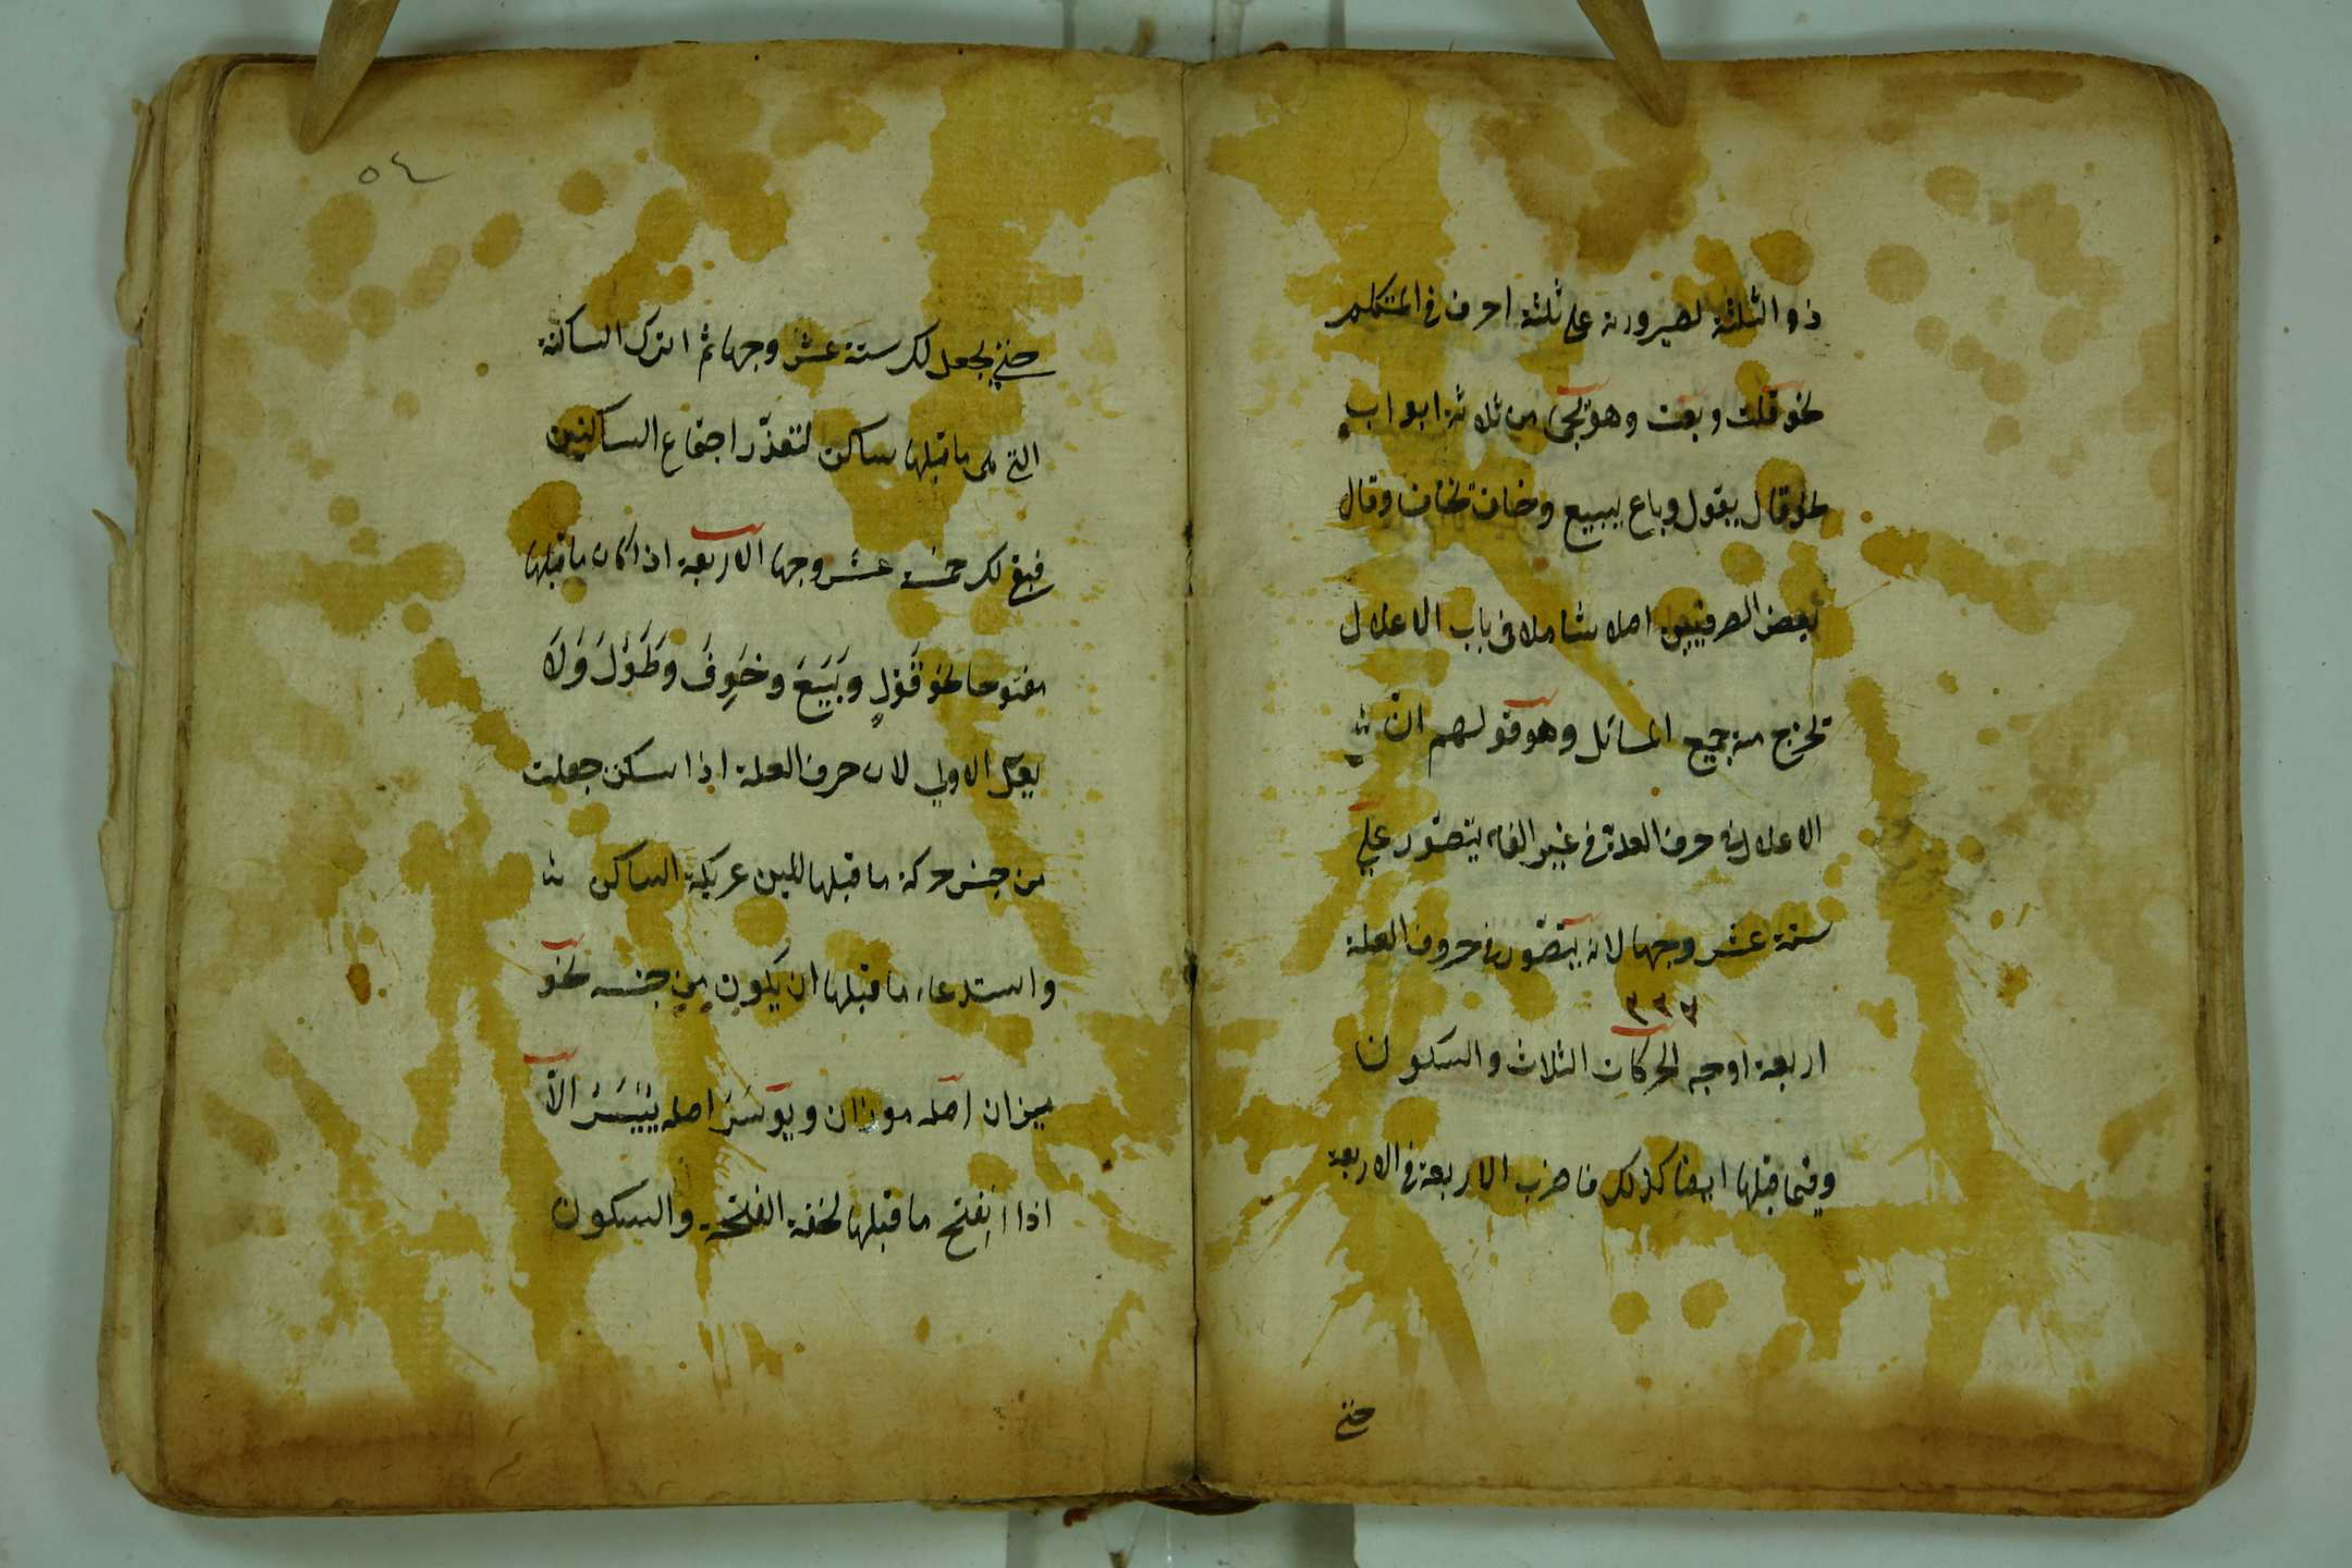 ذو الثلثة لصيرورته على ثلثة احرف فى المتكلم
نحو قلت وبعت وهو يجئ من ثلاثة ابواب
نحو قال يقول وباع يبيع وخاف يخاف وقال
بعض الصرفيين اصلا شاملا فى باب الاعلال
تخرج منه جميع المسائل وهو قولهم ان
الاعلال فى حرف العلة فى غير الفاء يتصور على
ستة عشر وجها لانه يتصور فى حروف العلة
اربعة اوجه الحركات الثلاث والسكون
وفيما قبلها ايضا كذلك فاضرب الاربعة فى الاربعة
حتى
٥٤
حتى يجعل لك ستة عشر وجها ثم اترك الساكنة
التى ما قبلها ساكن لتعذر اجتماع الساكنين
فبقى لك خمسة عشر وجها الاربعة اذا كان ما قبلها
مفتوحا نحو قَوْلٍ وبَيَعَ وخَوِفَ وطَوُلَ وَلَا
يعلّ الاولى لان حرف العلة اذا سكن جعلت
من جنس حركة ما قبلها للين عريكة الساكن
واستدعاء ما قبلها ان يكون من جنسه نحو
ميزان اصله موزان ويوسَرُ اصله يُيْسَرُ الّا
اذا انفتح ما قبلها لخفة الفتحة والسكون